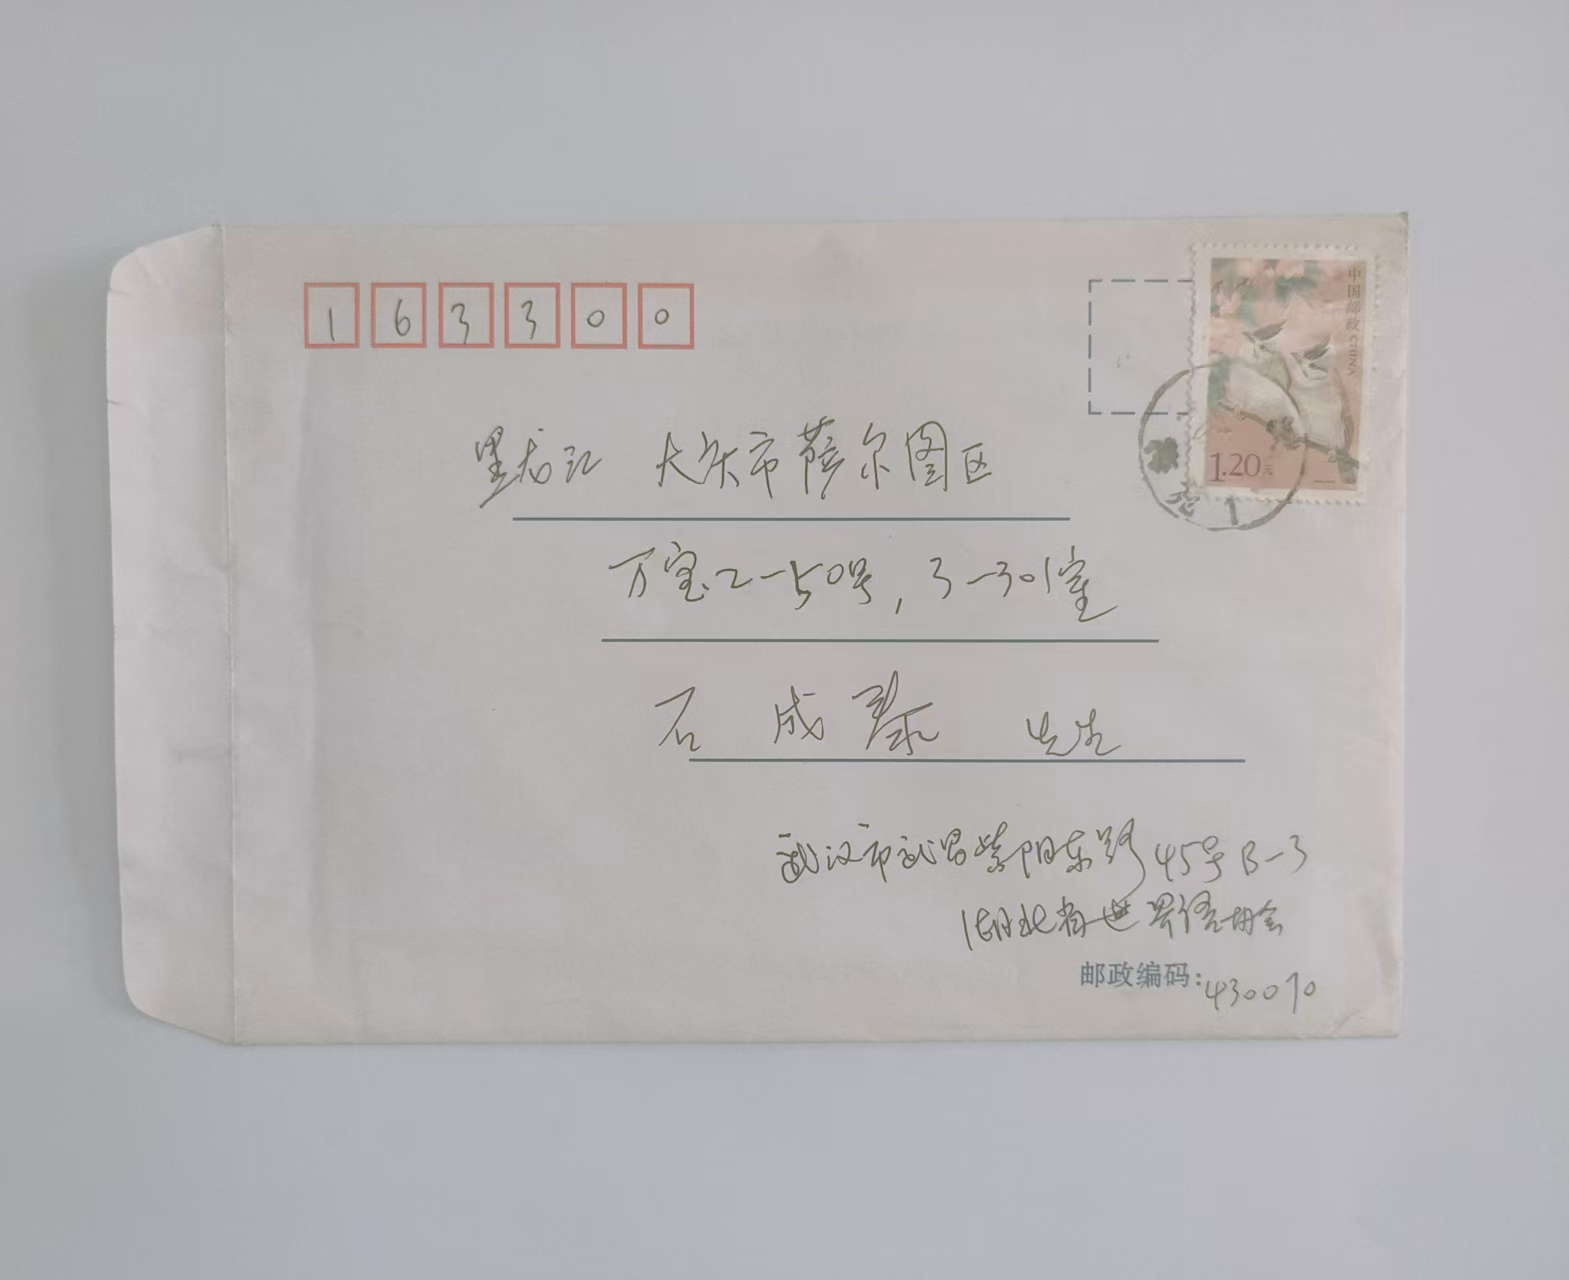 163300
中国邮政 CHINA
1.20元
黑龙江 大庆市萨尔图区
万宝2-50号，3-301室
石成泰 先生
武汉市武昌紫阳东路45号B-3
湖北省世界语协会
邮政编码：430070